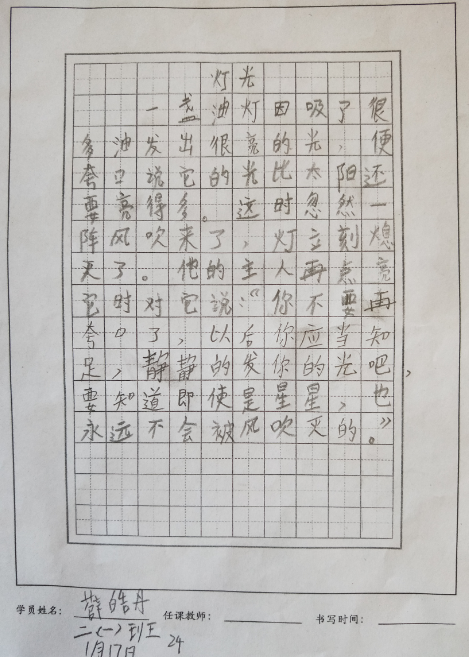 灯光
一盏油灯因吸了很
多油发出很亮的光,便
夸口说它的光比太阳还
要亮得多。这时忽然一
阵风吹来了,灯立刻熄
灭了。他的主人再点亮
它时对它说:“你不要再
夸口了,以后你应当知
足,静静的发你的光吧,
要知道即使是星星,也
永远不会被风吹灭的”。
学员姓名: 薛皓丹 任课教师: 书写时间:
二(一)班王
1月17日 24